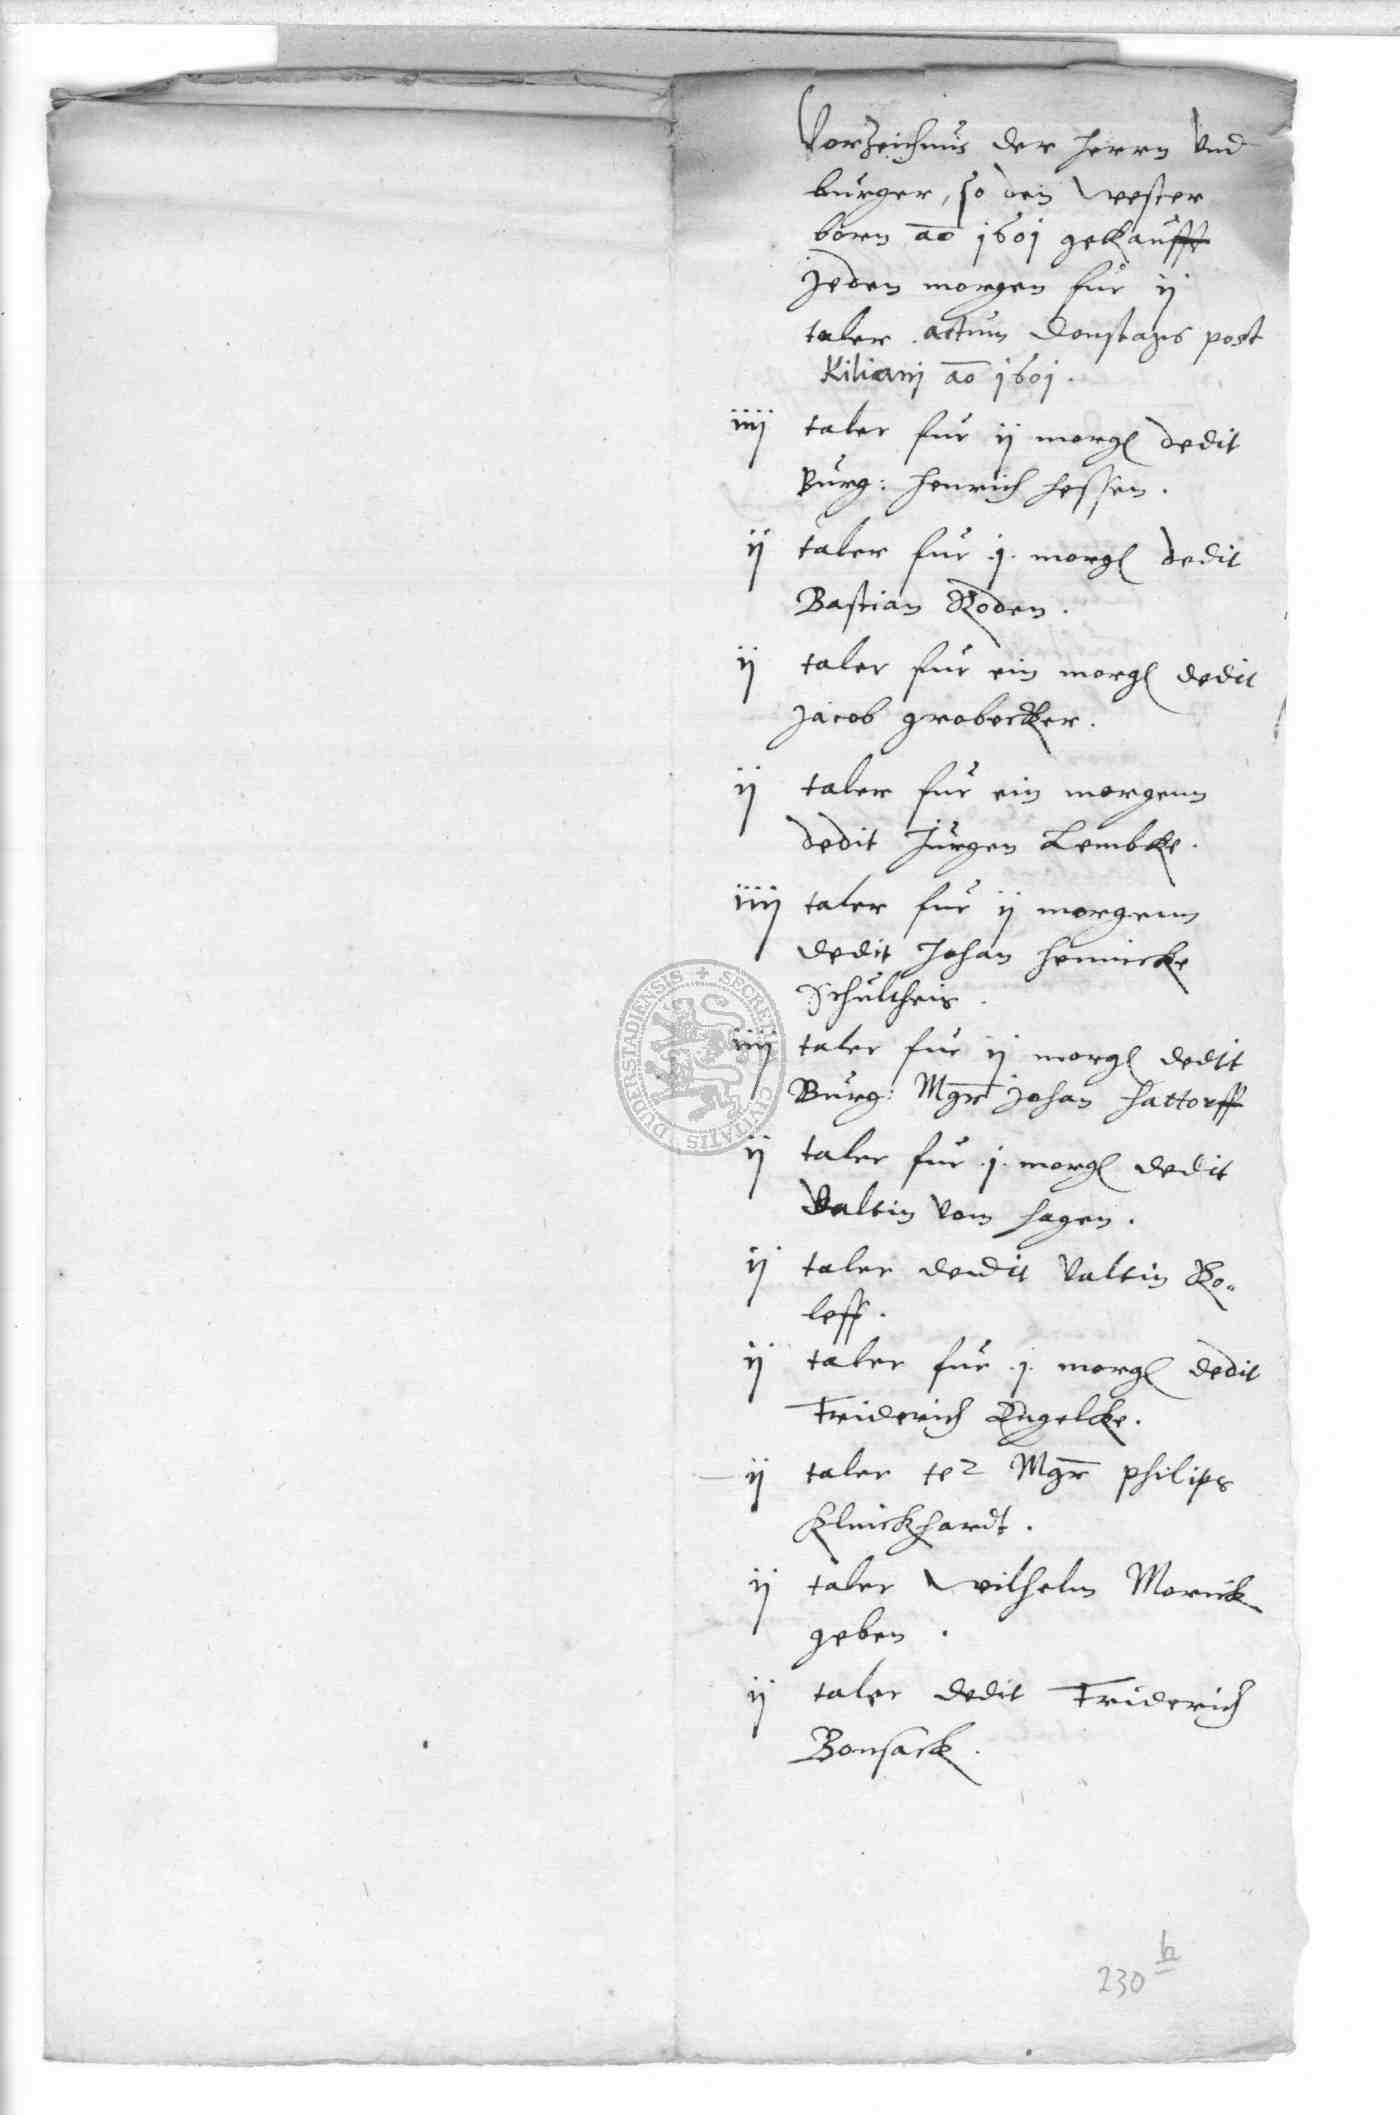 Vorzeichnus der Herrn Vnd
burger, so den Wester
born ao 1601 gekaufft
Jeden morgen fur ij
taler . actum Donstags post
Kilianj ao 1601 .
iiij taler fur ij morg dedit
Burg: Henrich Hessen .
ij taler fur .j. morg dedit
Bastian Roden .
ij taler fur ein morg dedit
Jacob grobecker .
ij taler fur ein morgenn
dedit Jurgen Lembke .
iiij taler fur ij morgenn
dedit Johan Hennicke
Schultheis .
iiij taler fur ij morg dedit
Burg: Mgr Johan Hattorff
ij taler fur .j. morg dedit
Valtin Vom Hagen .
ij taler dedit Valtin Ro„
leff .
ij taler fur .j. morg dedit
Friderich Engelcke .
ij taler Mgr Philips
Klinckhardt .
ij taler Wilhelm Morick
geben .
ij taler dedit Friderich
Bonsack .
230 b
SECRETUM CIVITATIS DUDERSTADIENSIS